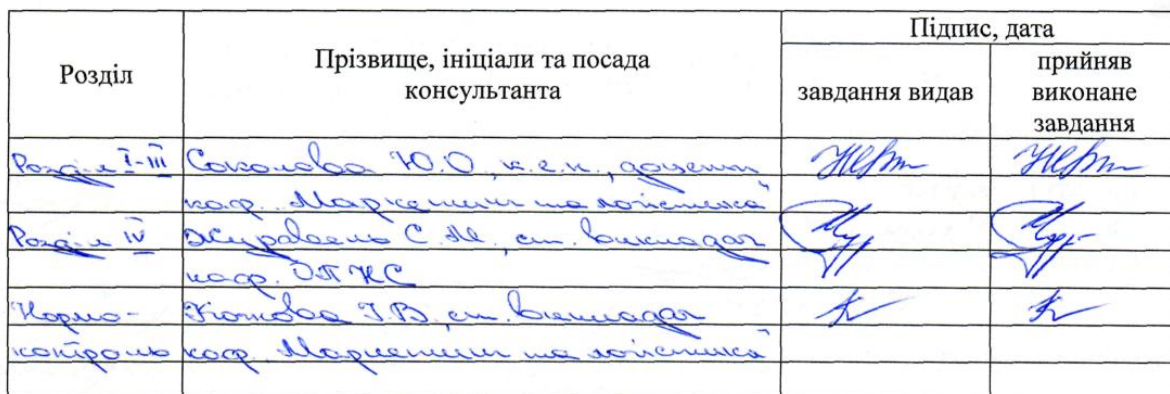 Розділ
Прізвище, ініціали та посада
консультанта
Підпис, дата
завдання видав
прийняв
виконане
завдання
Розділ I-III Соколова Ю.О., к.е.н., доцент
каф. Маркетинг та логістика"
Розділ IV Журавель С.М., ст. викладач
каф. ОПНС
Нормо- І.В., ст. викладач
контроль каф. Маркетинг та логістика"